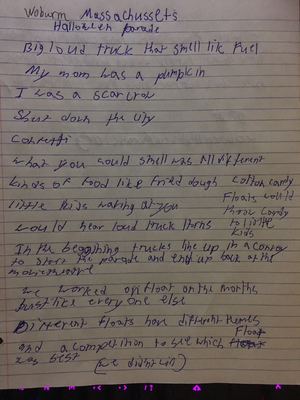 Woburn Massachussets
Halloween Parade
Big loud truck that smell like fuel
My mom was a pumpkin
I was a scarcrow
Shut down the city
Confetti
what you could smell was all different
kinds of food like fried dough cotton candy
little kids waking at you
Floats would
throw candy
to little
kids
would hear loud truck horns
In the beggining trucks line up in a convoy
to start the parade and end up back at the
we worked on float on the months
just like every one else
Different floats have different themes
and a competition to see which float
was best (we didnt win)